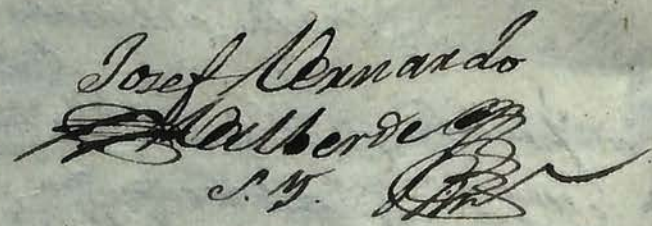 Josef Vernardo
Valberde